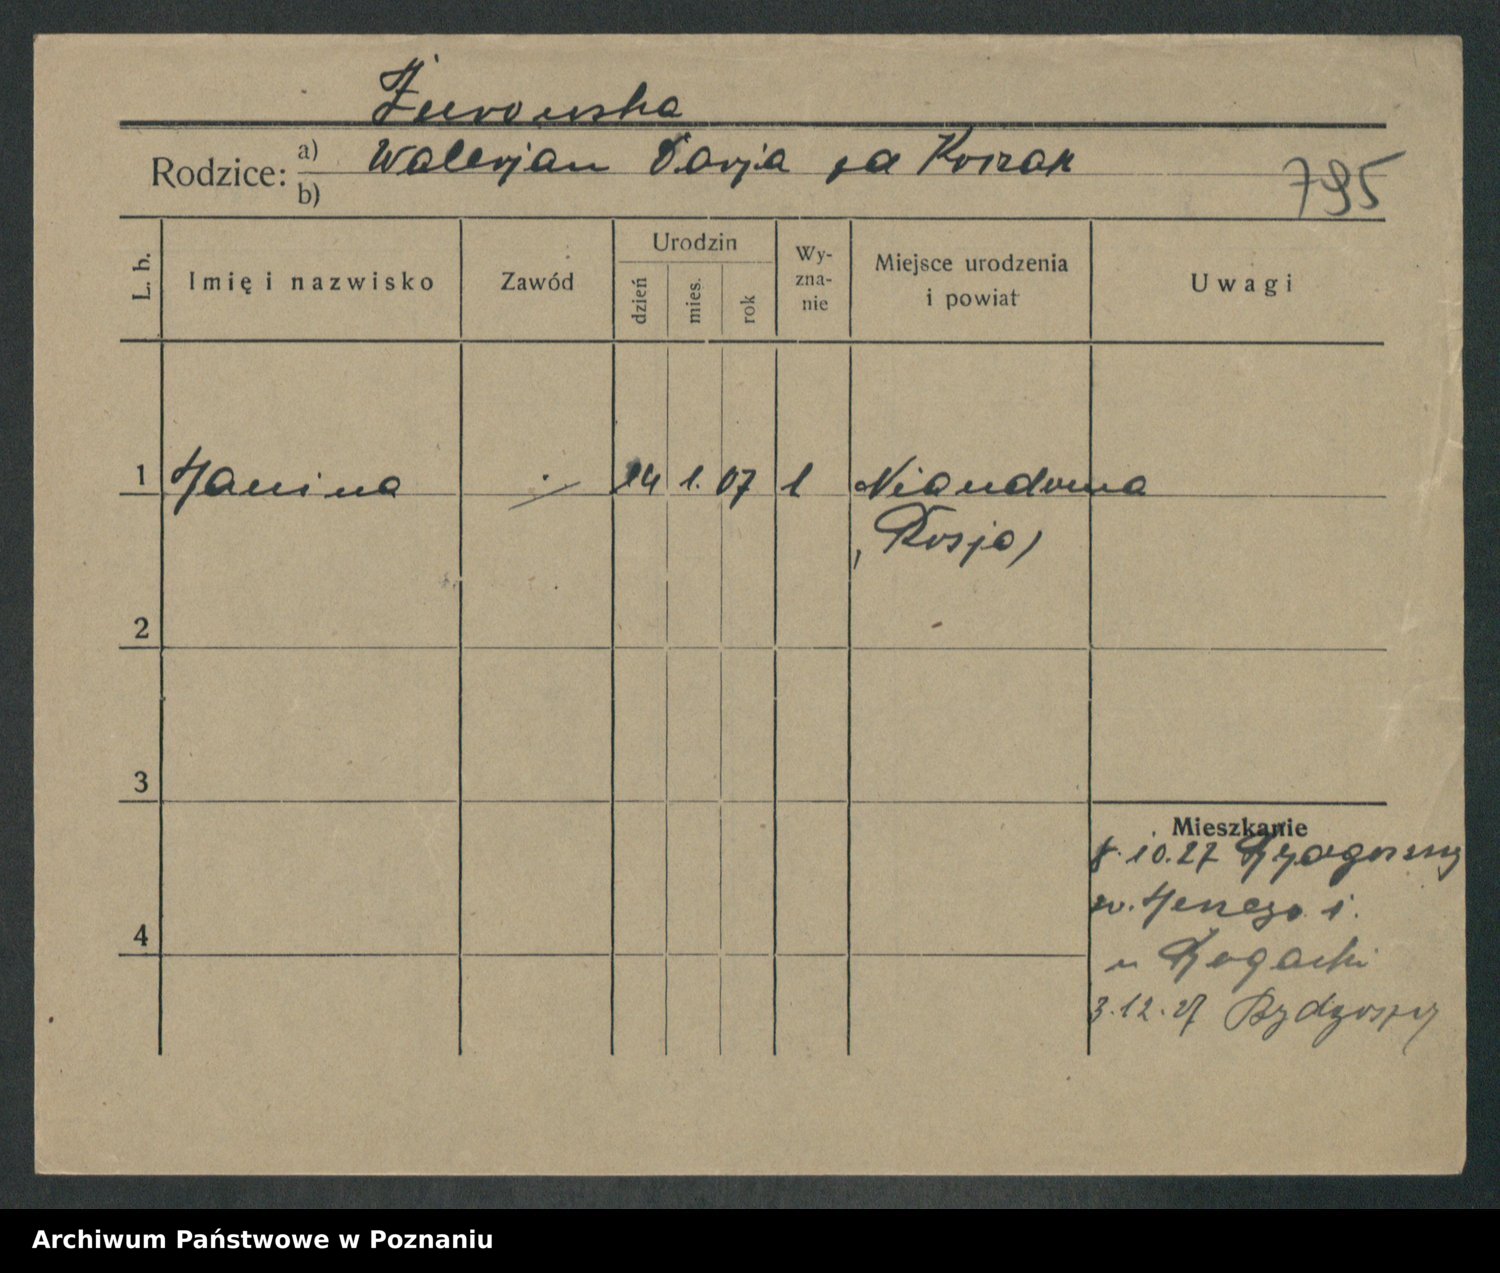 Żurowska
Rodzice: a) Walerjan Darja
b)
795
L. b.
Imię i nazwisko
Zawód
Urodzin
dzień
mies.
rok
Wy-
zna-
nie
Miejsce urodzenia
i powiat
Uwagi
1 Janina ./. 14 1. 07 1 Niandoma
(Rosja)
2
3
Mieszkanie
8.10.27 Bydgoszcz
4
3.12.27 Bydgoszcz
Archiwum Państwowe w Poznaniu